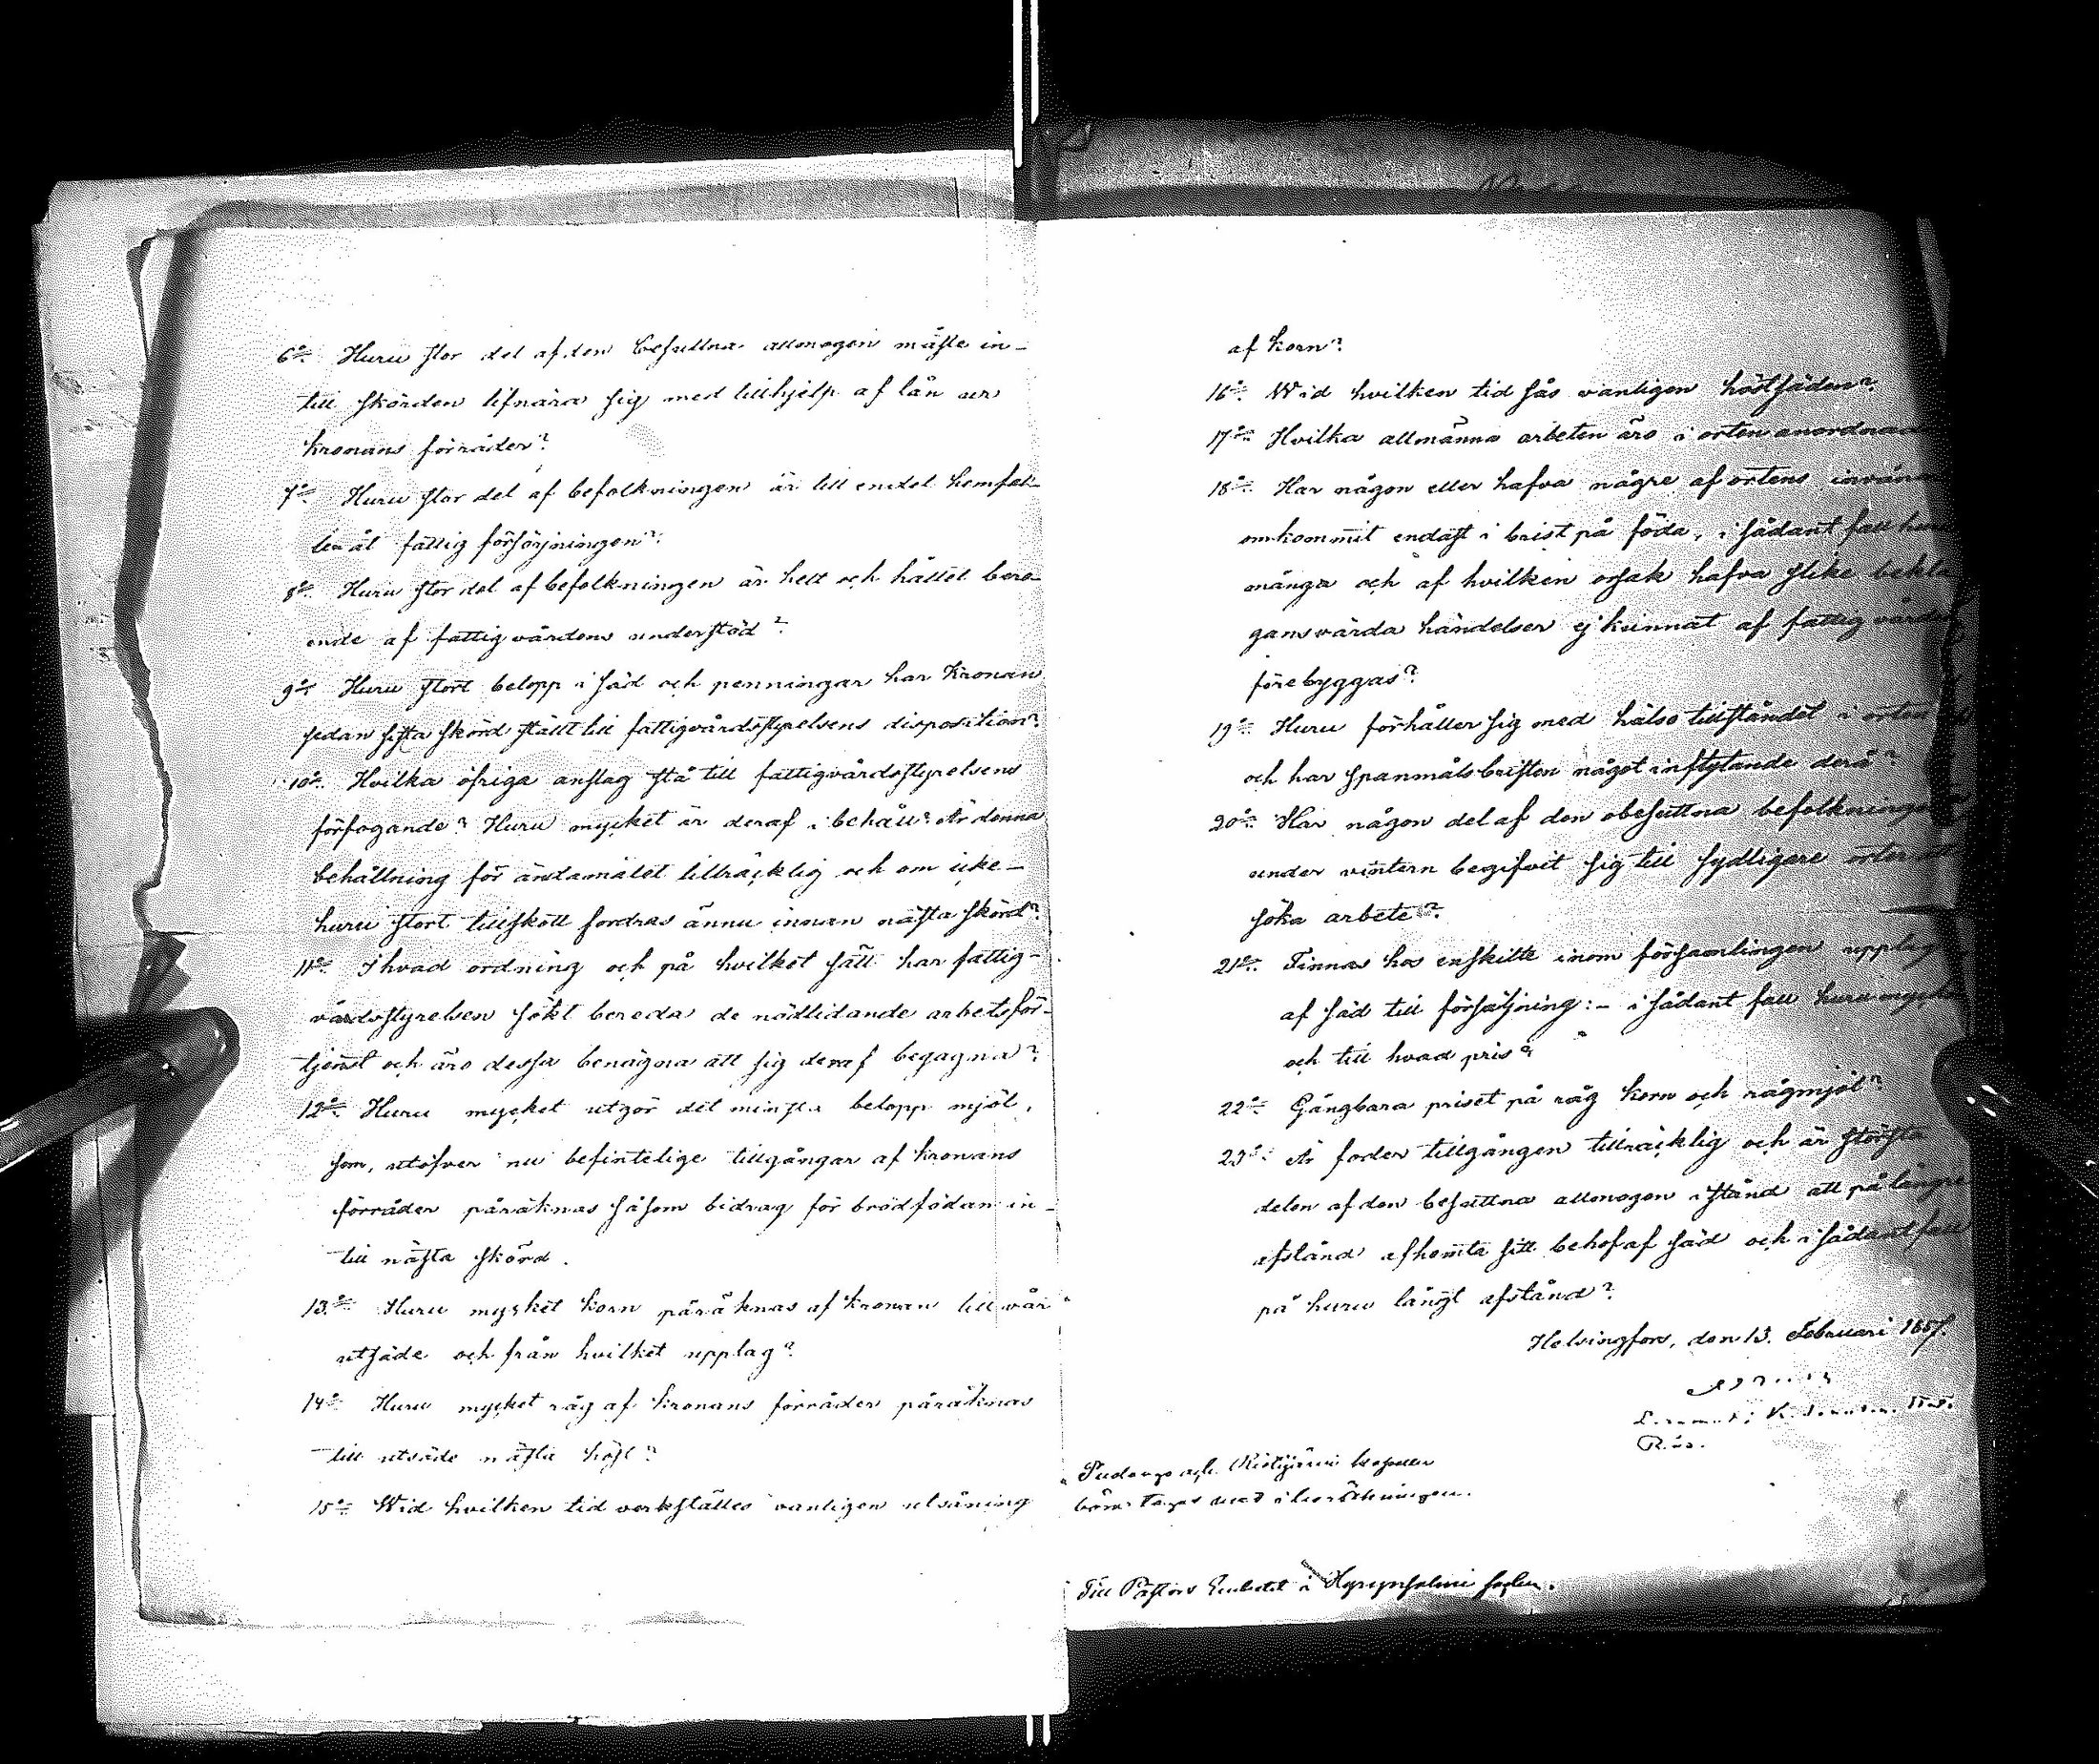 6:o Huru stor del af den besuttna allmogen måste in-
till skörden lifnära sig med tillhjelp af lån ur
Kronans förråder?
7:o Huru stor del af befolkningen är till endel hemfal-
len åt fattig försörjningen?
8:o Huru stor del af befolkningen är helt och hållet bero-
ende af fattigvårdens understöd?
9:o Huru stort belopp i säd och penningar har Kronan
sedan sista skörd ställt till fattigvårdsstyrelsens disposition?
10:o Hvilka öfriga anslag stå till fattigvårdsstyrelsens
förfogande? Huru mycket är deraf i behåll? Är denna
behållning för ändamålet tillräcklig och om icke -
huru stort tillskott fordras ännu innan nästa skörd?
11:o I hvad ordning och på hvilket sätt har fattig-
vårdsstyrelsen sökt bereda de nödlidande arbetsför-
tjenst och äro dessa benägna att sig deraf begagna?
12:o Huru mycket utgör det minsta belopp mjöl,
som, utöfver nu befintelige tillgångar af Kronans
förråder påräknas såsom bidrag för brödfödan in-
till nästa skörd.
13:o Huru mycket korn påräknas af Kronan till vår
utsäde och från hvilket upplag?
14:o Huru mycket råg af Kronans förråder påräknas
till utsäde nästa höst?
15:o Wid hvilken tid verkställes vanligen utsåning
af korn?
16:o Wid hvilken tid sås vanligen höstsäden?
17:o Hvilka allmänna arbeten äro i orten anordnade
18:o Har någon eller hafva någre af ortens invåna
omkommit endast i brist på föda, i sådant fall huru
många och af hvilken orsak hafva slike bekla
gansvärda händelser ej kunnat af fattigvården
förebyggas?
19:o Huru förhåller sig med hälsotillståndet i orten
och har spanmålsbristen något inflytande derå?
20:o Har någon del af den obesuttna befolkningen
under vintern begifvit sig till sydligare orter att
söka arbete?
21:o Finnas hos enskilte inom församlingen upplag
af säd till försäljning:- i sådant fall huru mycket
och till hvad pris?
22:o Gångbara priset på råg korn och rågmjöl?
23:o Är foder tillgången tillräcklig och är största
delen af den besuttna allmogen i stånd att på längre
afstånd afhemta sitt behof af säd och i sådant fall
på huru långt afstånd?
Helsingfors, den 13. Februari 1857.
Pudasjo och Ristijärvi
böra tagas med i beräkningen.
Till Pastors Embetet i Hyrynsalmi